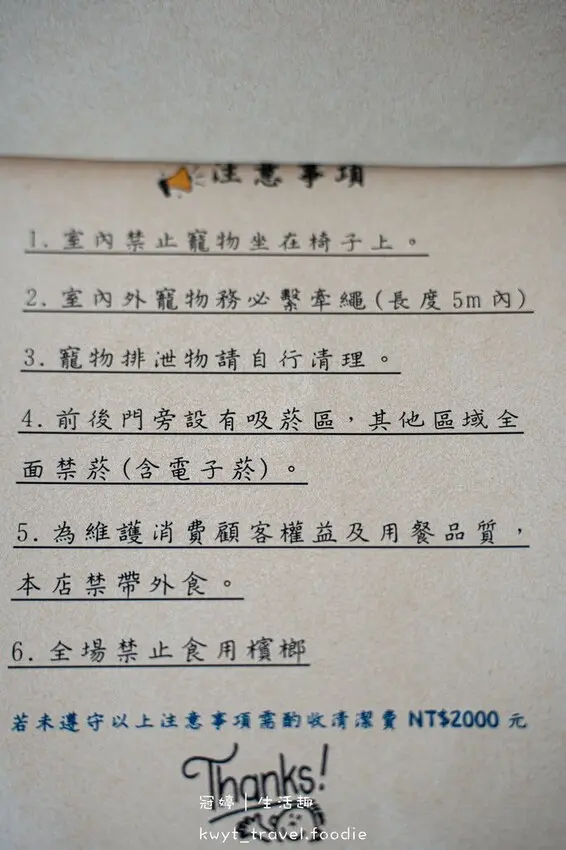 注意事項
1.室內禁止寵物坐在椅子上。
2.室內外寵物務必繫牽繩(長度5m內)
3.寵物排泄物請自行清理。
4.前後門旁設有吸菸區,其他區域全
面禁菸(含電子菸)。
5.為維護消費顧客權益及用餐品質,
本店禁帶外食。
6.全場禁止食用檳榔
若未遵守以上注意事項需酌收清潔費 NT$2000 元
Thanks!
冠婷|生活趣
kwyt_travel.foodie